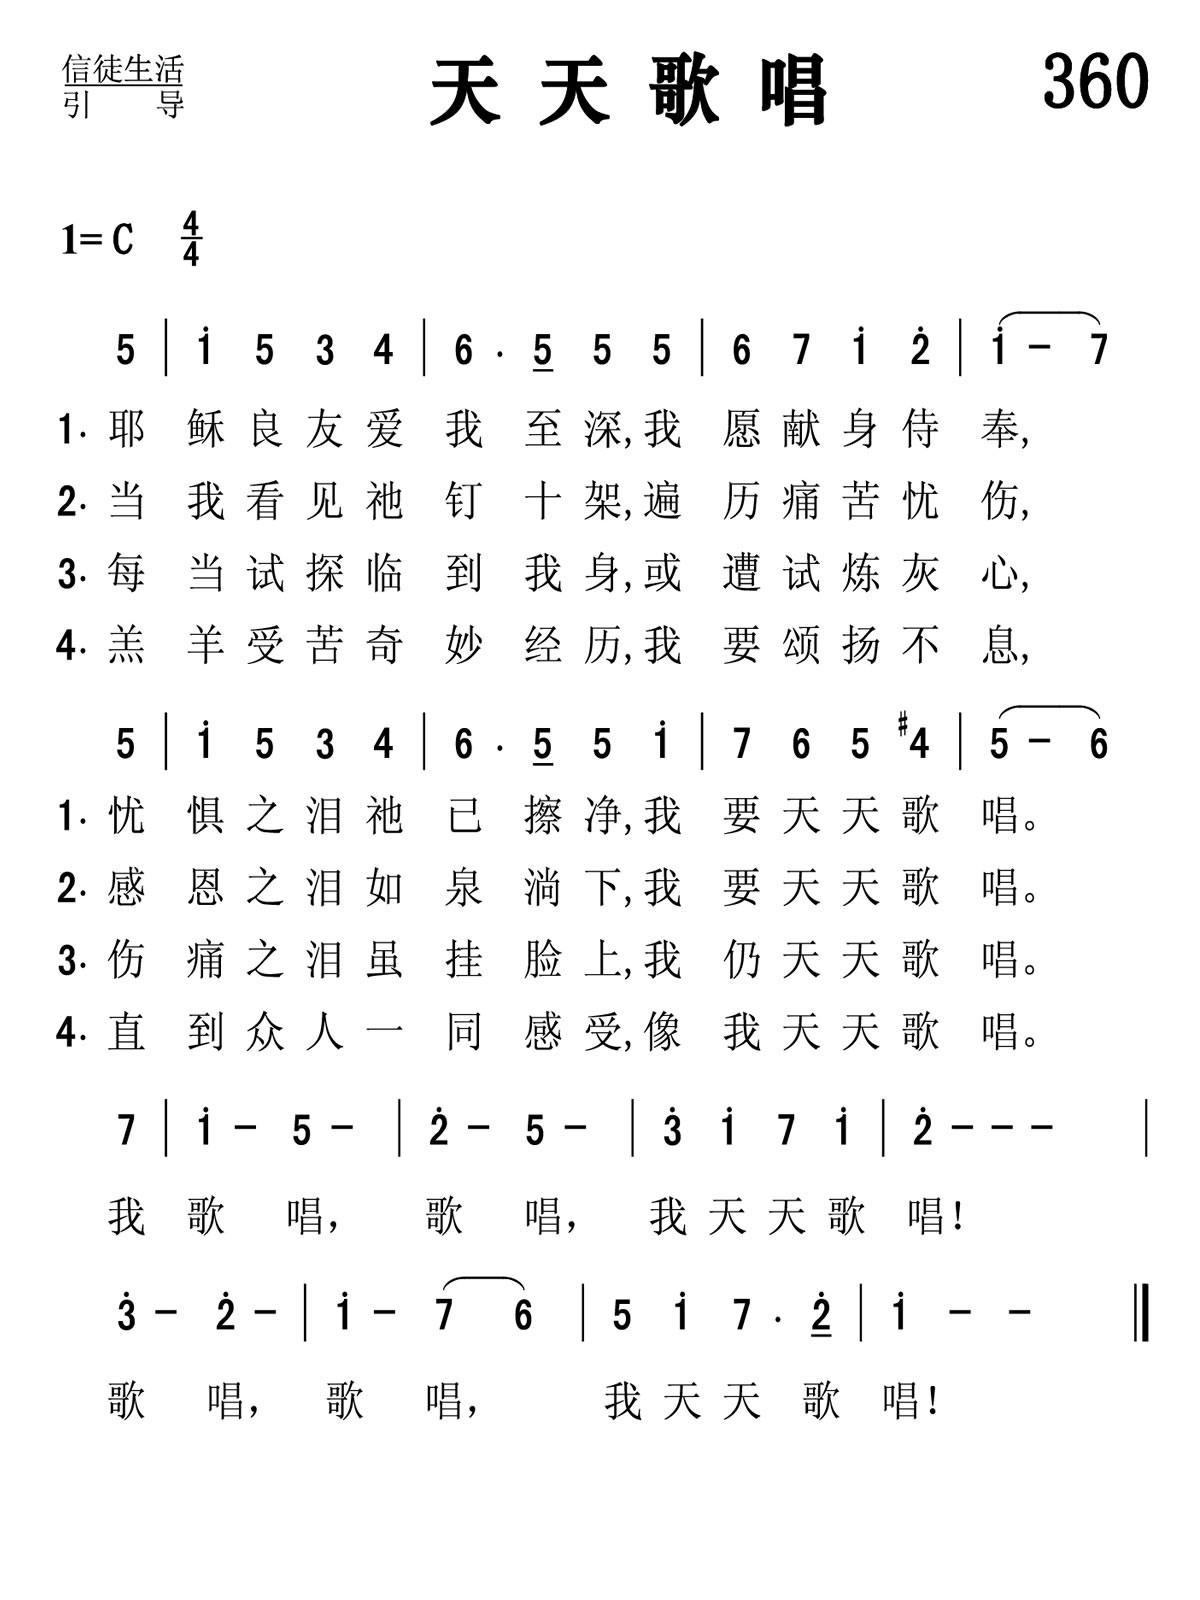 信徒生活
引 导
天天歌唱
360
1=C 4/4
5 | i 5 3 4 | 6 . 5 5 5 | 6 7 i 2̇ | i – 7
1. 耶 稣 良 友 爱 我 至 深,我 愿 献 身 侍 奉,
2. 当 我 看 见 祂 钉 十 架,遍 历 痛 苦 忧 伤,
3. 每 当 试 探 临 到 我 身,或 遭 试 炼 灰 心,
4. 羔 羊 受 苦 奇 妙 经 历,我 要 颂 扬 不 息,
5 | i 5 3 4 | 6 . 5 5 i | 7 6 5 #4 | 5 – 6
1. 忧 惧 之 泪 祂 已 擦 净,我 要 天 天 歌 唱。
2. 感 恩 之 泪 如 泉 淌 下,我 要 天 天 歌 唱。
3. 伤 痛 之 泪 虽 挂 脸 上,我 仍 天 天 歌 唱。
4. 直 到 众 人 一 同 感 受,像 我 天 天 歌 唱。
7 | i – 5 – | 2̇ – 5 – | 3̇ i 7 i | 2̇ – – – |
我 歌 唱, 歌 唱, 我 天 天 歌 唱!
3̇ – 2̇ – | i – 7 6 | 5 i 7 . 2̇ | i – – ‖
歌 唱, 歌 唱, 我 天 天 歌 唱!